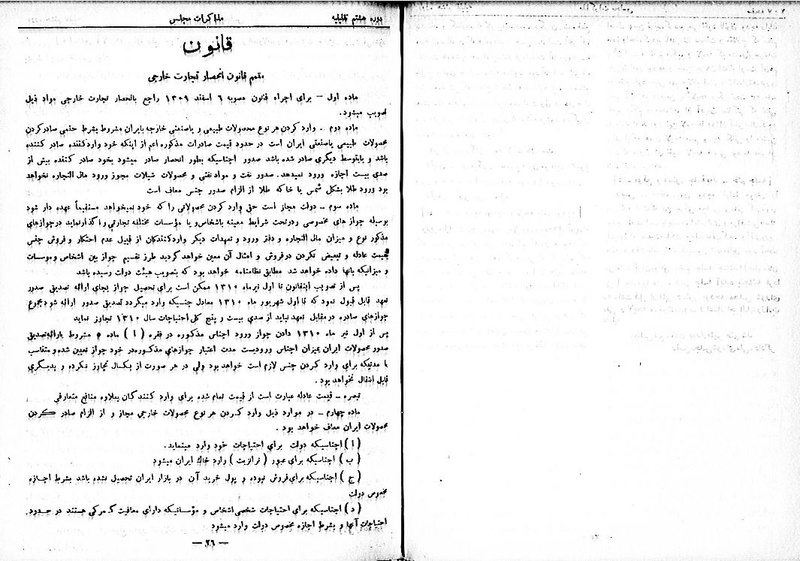 دوره هشتم تقنینیه
مذاکرات مجلس
قانون
متمم قانون انحصار تجارت خارجی
ماده اول – برای اجراء قانون مصوبه ۶ اسفند ۱۳۰۹ راجع بانحصار تجارت خارجی مواد ذیل
تصویب میشود.
ماده دوم – وارد کردن هر نوع محصولات طبیعی و یاصنعتی خارجه بایران مشروط بشرط حتمی صادرکردن
محصولات طبیعی یاصنعتی ایران است در حدود قیمت صادرات مذکوره اعم از اینکه خود واردکننده صادر کننده
باشد و یابتوسط دیگری صادر شده باشد صدور اجناسیکه بطور انحصار صادر میشود بخود صادر کننده بیش از
صدی بیست اجازه ورود نمیدهد. صدور نفت و مواد نفتی و محصولات شیلات مجوز ورود مال التجاره نخواهد
بود ورود طلا بشکل شمش یا خاکه طلا از الزام صدور جنس معاف است
ماده سوم – دولت مجاز است حق وارد کردن محصولاتی را که خود نمیخواهد مستقیماً عهده دار شود
بوسیله جواز های مخصوصی ودرتحت شرایط معینه باشخاص و یا مؤسسات مختلفه تجارتی واگذارنماید درجوازهای
مذکور نوع و میزان مال التجاره و دفتر ورود و تعهدات دیگر واردکنندگان از قبیل عدم احتکار و فروش جنس
بقیمت عادله و تبعیض نکردن درفروش و امثال آن معین خواهد گردید طرز تقسیم جواز بین اشخاص ومؤسسات
و میزانیکه بانها داده خواهد شد مطابق نظامنامه خواهد بود که بتصویب هیئت دولت رسیده باشد
پس از تصویب اینقانون تا اول تیرماه ۱۳۱۰ ممکن است برای تحصیل جواز بجای ارائه تصدیق صدور
تعهد قابل قبول نمود که تا اول شهریور ماه ۱۳۱۰ معادل جنسیکه وارد میگردد تصدیق صدور ارائه شود مجموع
جوازهای صادره درمقابل تعهد نباید از صدی بیست و پنج کل احتیاجات سال ۱۳۱۰ تجاوز نماید
پس از اول تیر ماه ۱۳۱۰ دادن جواز ورود اجناس مذکوره در فقره ( ۱ ) ماده مشروط بارائه تصدیق
صدور محصولات ایران بمیزان اجناس ورودیست مدت اعتبار جوازهای مذکوره در خود جواز تعیین شده و متناسب
با مدتیکه برای وارد کردن جنس لازم است خواهد بود ولی در هر صورت از یکسال تجاوز نکرده و بدیگری
قابل انتقال نخواهد بود.
تبصره – قیمت عادله عبارت است از قیمت تمام شده برای وارد کنندگان بعلاوه منافع متعارفی
ماده چهارم – در موارد ذیل وارد کردن هر نوع محصولات خارجی مجاز و از الزام صادر کردن
محصولات ایران معاف خواهد بود.
( ا ) اجناسیکه دولت برای احتیاجات خود وارد مینماید.
( ب ) اجناسیکه برای عبور ( ترانزیت ) وارد خاک ایران میشود
( ج ) اجناسیکه برای فروش نبوده و پول خرید آن در بازار ایران تحصیل نشده باشد بشرط اجازه
مخصوص دولت
( د ) اجناسیکه برای احتیاجات شخصی اشخاص و مؤسساتیکه دارای معافیت گمرکی هستند در حدود
احتیاجات آنها و بشرط اجازه مخصوص دولت وارد میشود
— ۲۶ —